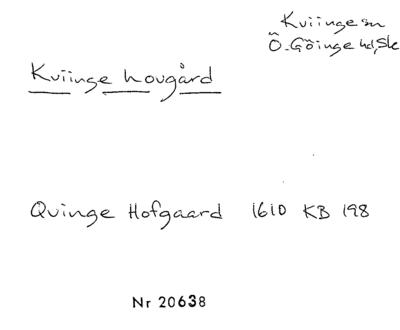 Kviinge sn
Ö. Göinge hd, Sk
Kviinge hovgård
Quinge Hofgaard 1610 KB 198
Nr 20638